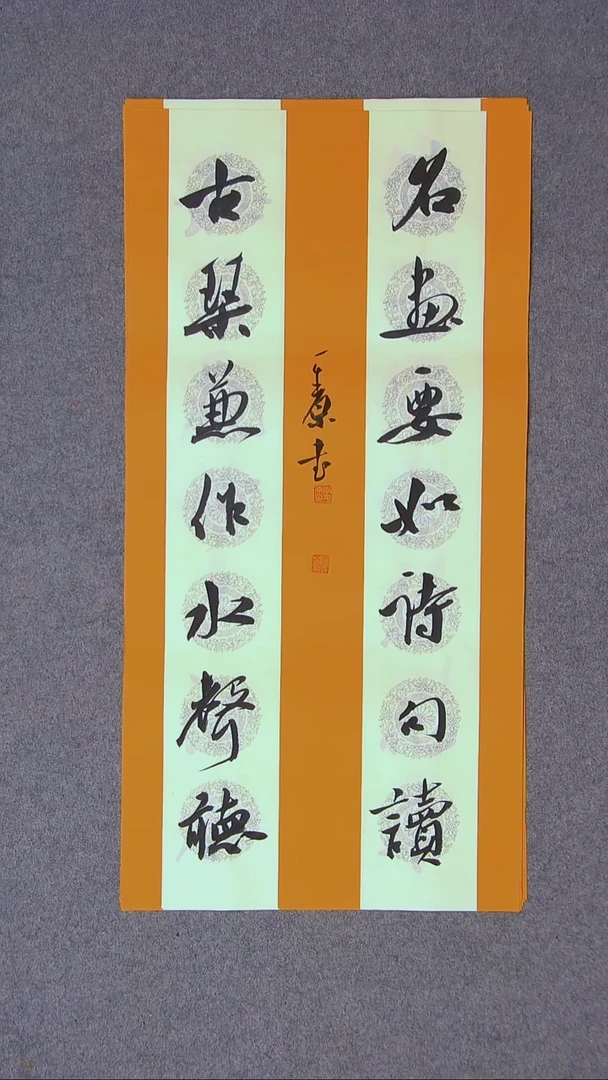 名画要如詩句讀
古琴兼作水聲聽
書